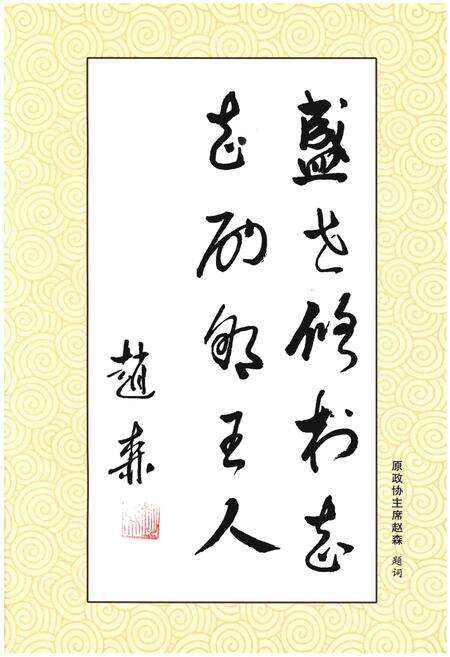 盛世修村志
志励邹王人
趙森
原政协主席赵森 题词